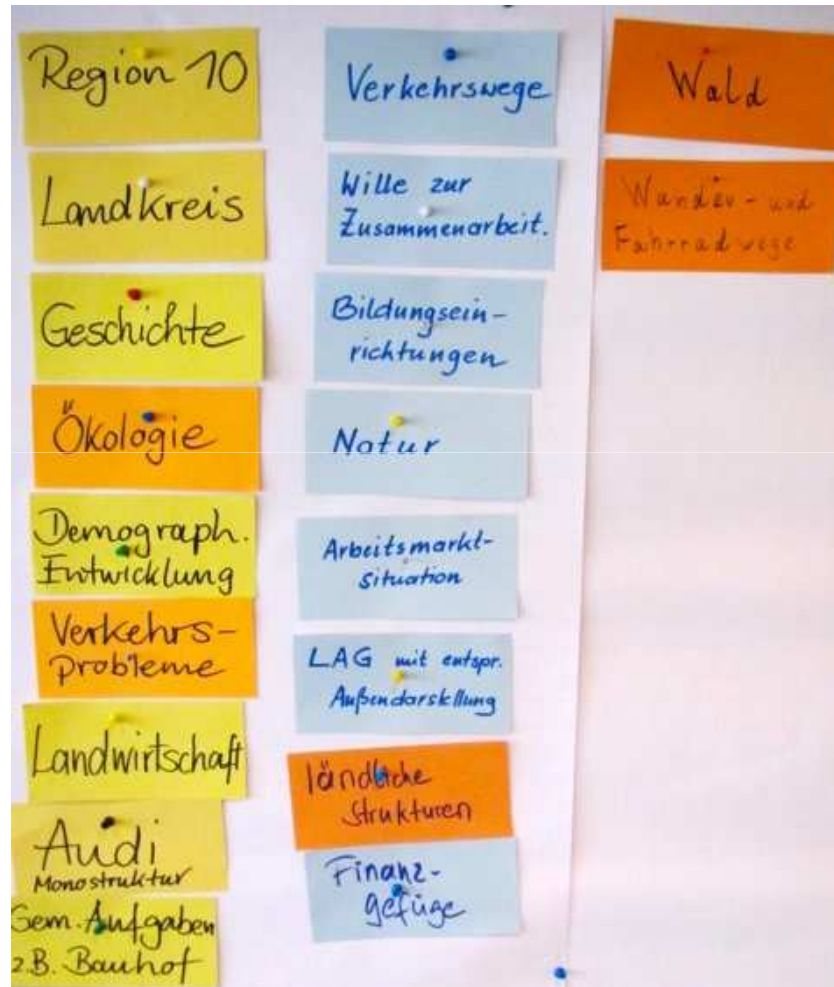 Region 10
Landkreis
Geschichte
Ökologie
Demograph.
Entwicklung
Verkehrs-
probleme
Landwirtschaft
Audi
Monostruktur
Gem. Aufgaben
z.B. Bauhof
Verkehrswege
Wille zur
Zusammenarbeit.
Bildungsein-
richtungen
Natur
Arbeitsmarkt-
situation
LAG mit entspr.
Außendarstellung
ländliche
Strukturen
Finanz-
gefüge
Wald
Wander- und
Fahrradwege